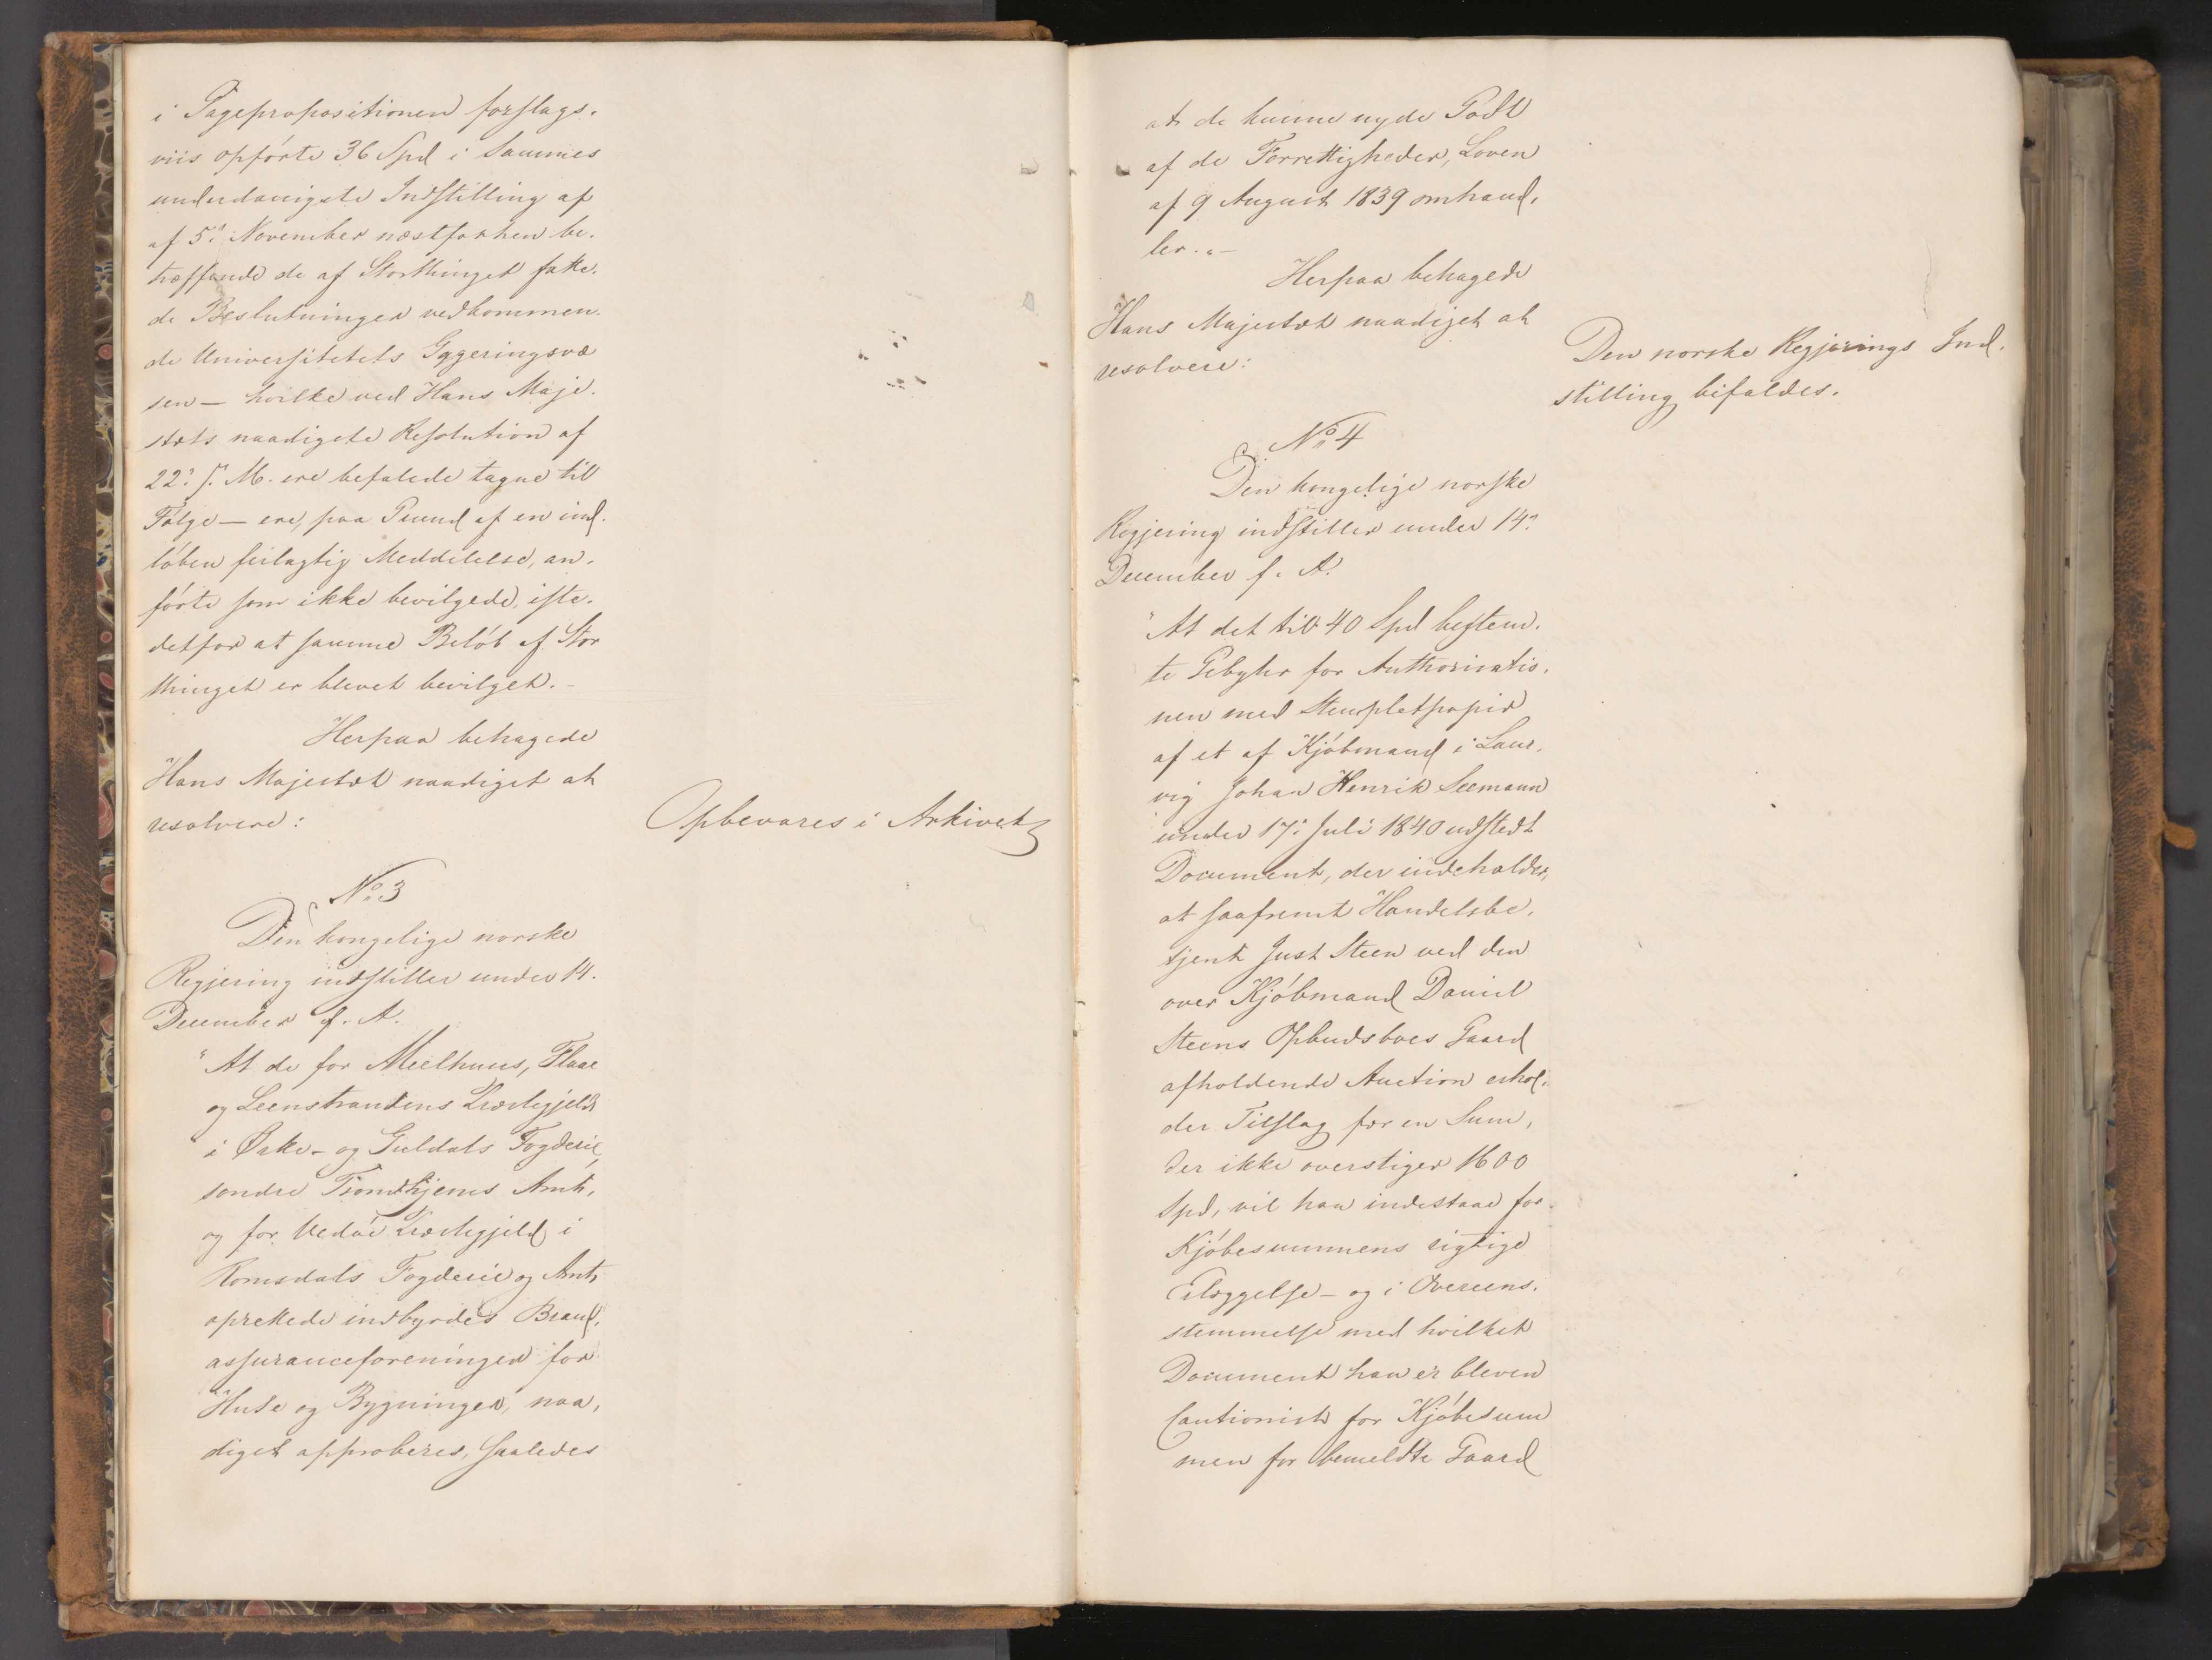 i Gagepropositionen forslags-
viis opførte 36 Spd i Sammes
underdanigste Indstilling af
af 5te November næstforhen be-
træffende de af Storthinget fatte-
de Beslutninger vedkommen-
de Universitetets Byggeringsvæ
sen – hvilke ved Hans Maje-
stæts naadigste Resolution af
22de f. M. ere befalede tagne til
Følge – ere, paa Grund af en ind-
løben feilagtig Meddelelse, an-
førte som ikke bevilgede, iste-
detfor at samme Beløb af Stor
thinget er blevet bevilget. –
Herpaa behagede
Hans Majestæt naadigst at
resolvere:
Opbevares i Arkivet
No 3
Den kongelige norske
Regjering indstiller under 14.
December f. A.
"At de for Meelhuus, Flaae
og Leenstrandens Præstegjeld
i Ørke- og Guldals Fogderie,
søndre Trondhjems Amt,
og for Vedøe Præstegjeld i
Romsdals Fogderie og Amt
oprettede indbyrdes Brand-
assuranceforeninger for
Huse og Bygninger, naa-
digst approberes, saaledes
at de kunne nyde Godt
af de Forrettigheder, Loven
af 9 August 1839 omhand-
ler." –
Herpaa behagede
Hans Majestæt naadigst at
resolvere:
Den norske Regjerings Ind-
stilling bifaldes.
No 4
Den kongelige norske
Regjering indstiller under 14de
December f. A.
"At det til 40 Spd bestem-
te Gebyhr for Authorisatio-
nen med Stemplet papir
af et af Kjøbmand i Laur-
vig Johan Henrik Seemann
under 17de Juli 1840 udstedt
Document, der indeholder,
at saafremt Handelsbe-
tjent Just Steen ved den
over Kjøbmand Daniel
Steens Opbudsboes Gaard
afholdende Auction erhol-
der Tilslag for en Sum,
der ikke overstiger 1600
Spd, vil han indestaae for
Kjøbesummens rigtige
Erlæggelse – og i Overeens-
stemmelse med hvilket
Document han er bleven
Cautionist for Kjøbesum
men for bemeldte Gaard